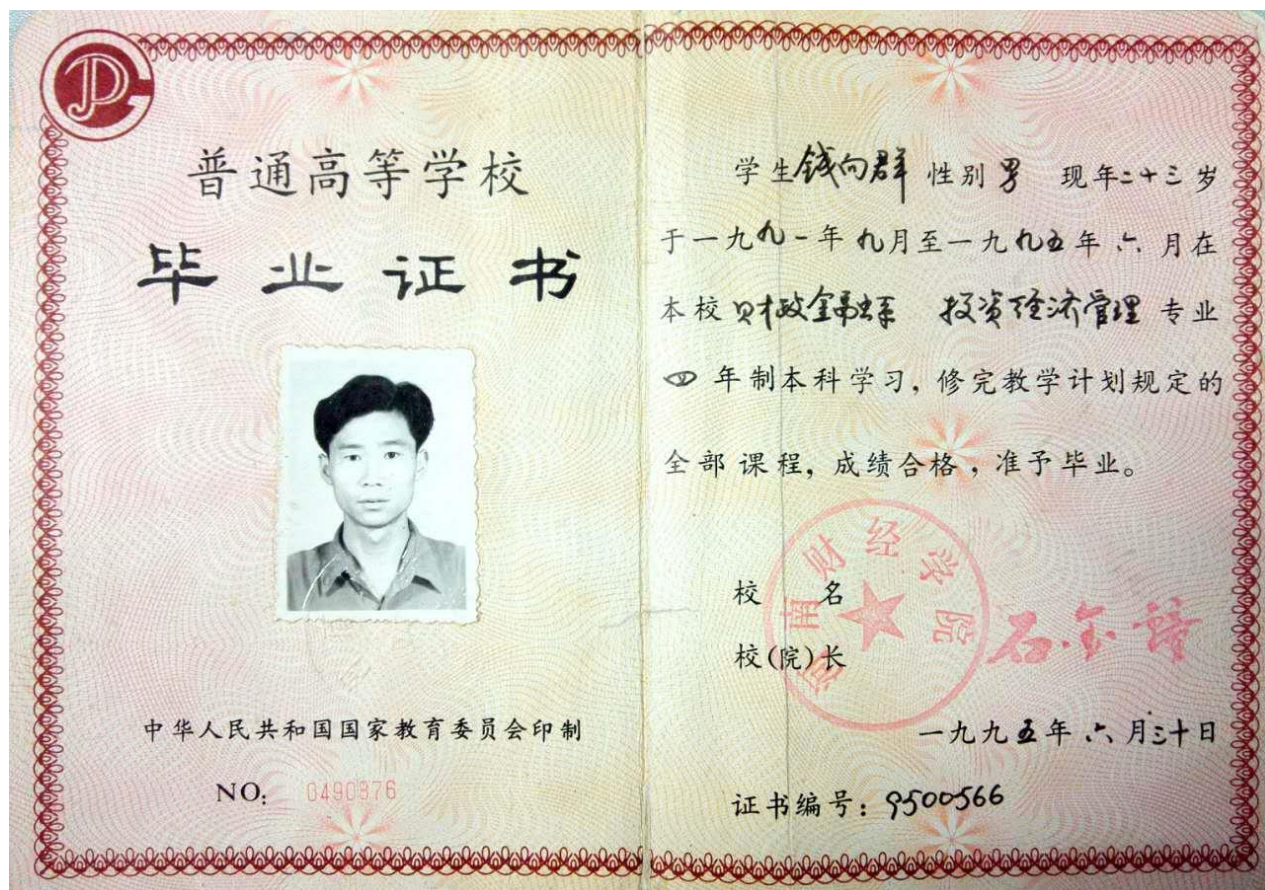 普通高等学校
毕业证书
中华人民共和国国家教育委员会印制
NO: 0490376
学生钱向群 性别男 现年二十三岁
于一九九一年九月至一九九五年六月在
本校财政金融系 投资经济管理 专业
四年制本科学习，修完教学计划规定的
全部课程，成绩合格，准予毕业。
校 名
河南财经学院
校(院)长
一九九五年六月三十日
证书编号：9500566